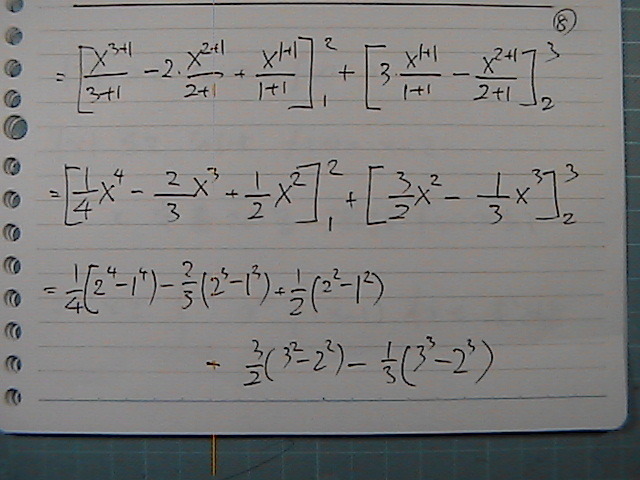 ⑧
= [x^(3+1)/(3+1) − 2·x^(2+1)/(2+1) + x^(1+1)/(1+1)]₁² + [3·x^(1+1)/(1+1) − x^(2+1)/(2+1)]₂³
= [1/4 x⁴ − 2/3 x³ + 1/2 x²]₁² + [3/2 x² − 1/3 x³]₂³
= 1/4(2⁴−1⁴) − 2/3(2³−1³) + 1/2(2²−1²)
+ 3/2(3²−2²) − 1/3(3³−2³)